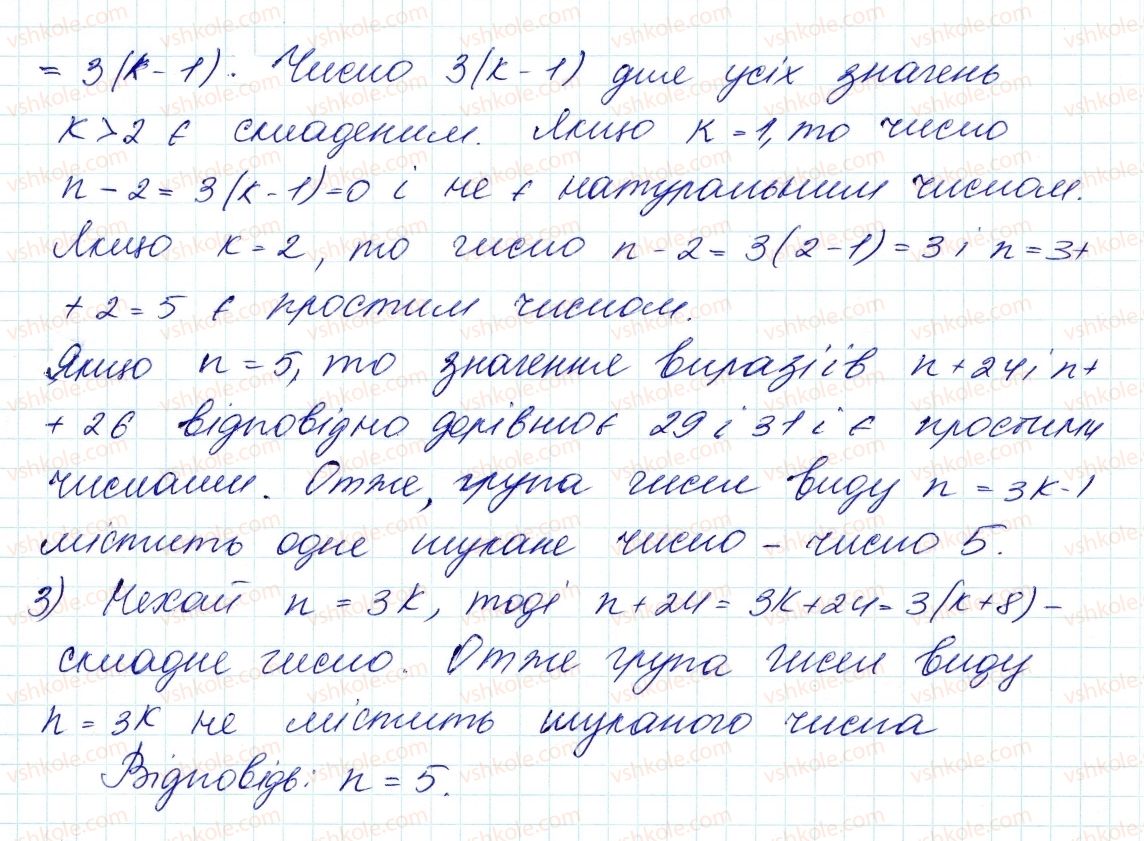 = 3(k-1). Число 3(k-1) для усіх значень
k>2 є складеним. Якщо k=1, то число
n-2=3(k-1)=0 і не є натуральним числом.
Якщо k=2, то число n-2=3(2-1)=3 і n=3+
+2=5 є простим числом.
Якщо n=5, то значення виразіів n+24 і n+
+26 відповідно дорівнює 29 і 31 і є простими
числами. Отже, група чисел виду n=3k-1
містить одне шукане число - число 5.
3) Нехай n=3k, тоді n+24=3k+24=3(k+8)-
складне число. Отже група чисел виду
n=3k не містить шуканого числа
Відповідь: n=5.